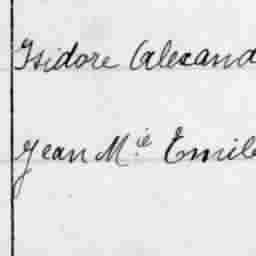 Isidore Alexand
Jean Mie Emile